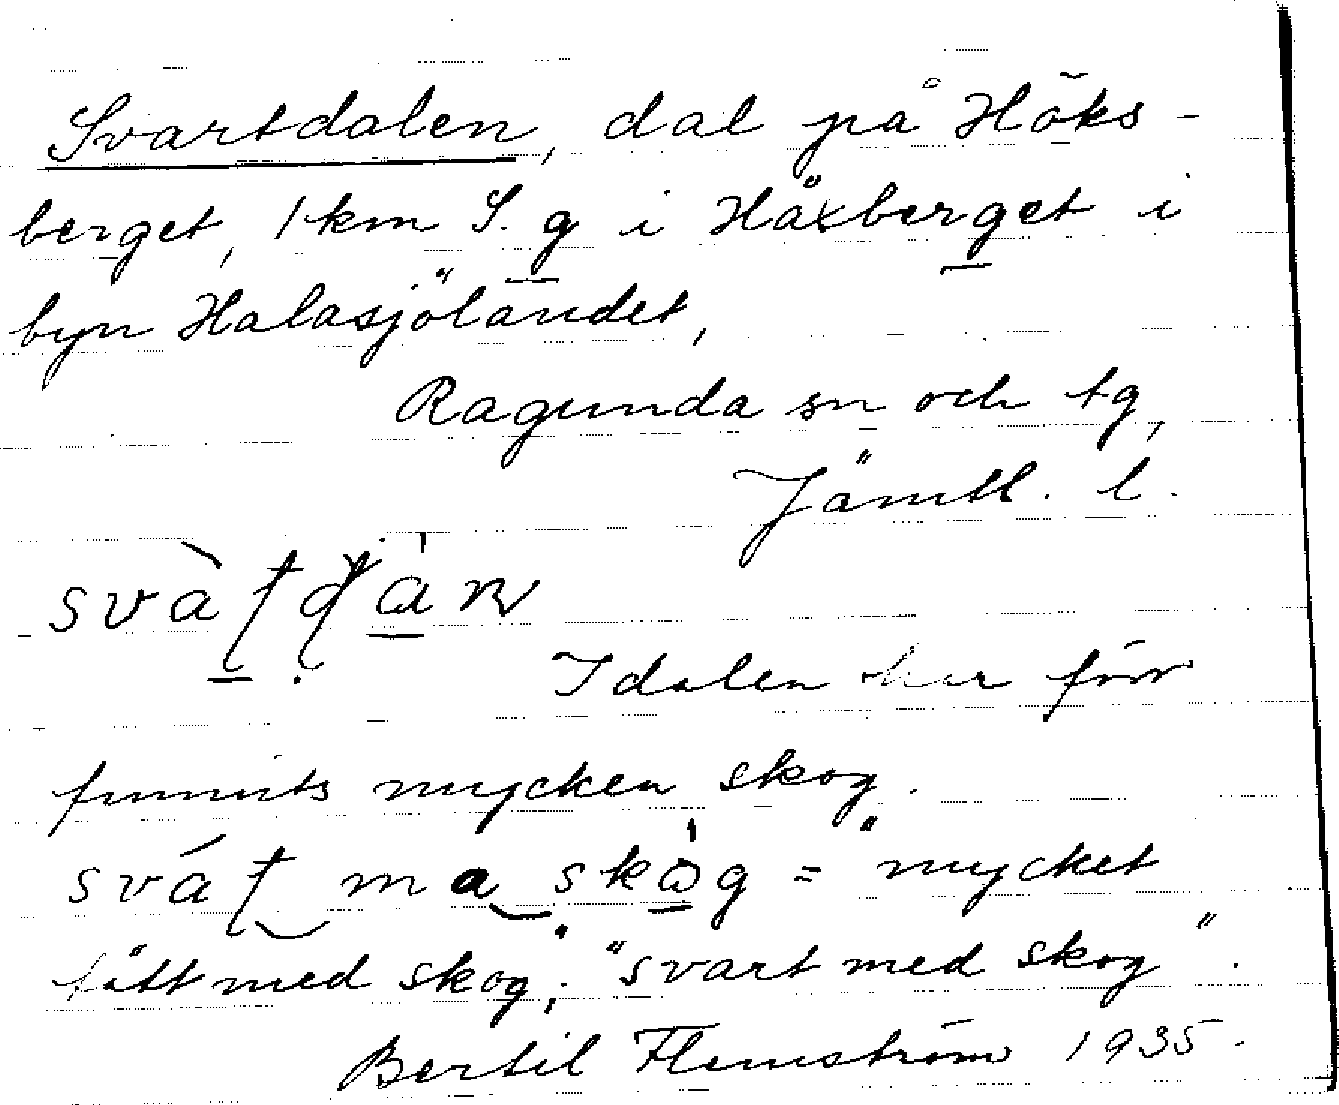 Svartdalen, dal på Höks-
berget, 1 km S. g i Häxberget i
byn Halasjöländet,
Ragunda sn och tg,
Jämtl. l.
I dalen har förr
funnits mycken skog.
svát̠ ma skò̠g = "mycket
tätt med skog"; "svart med skog".
Bertil Flemström 1935.